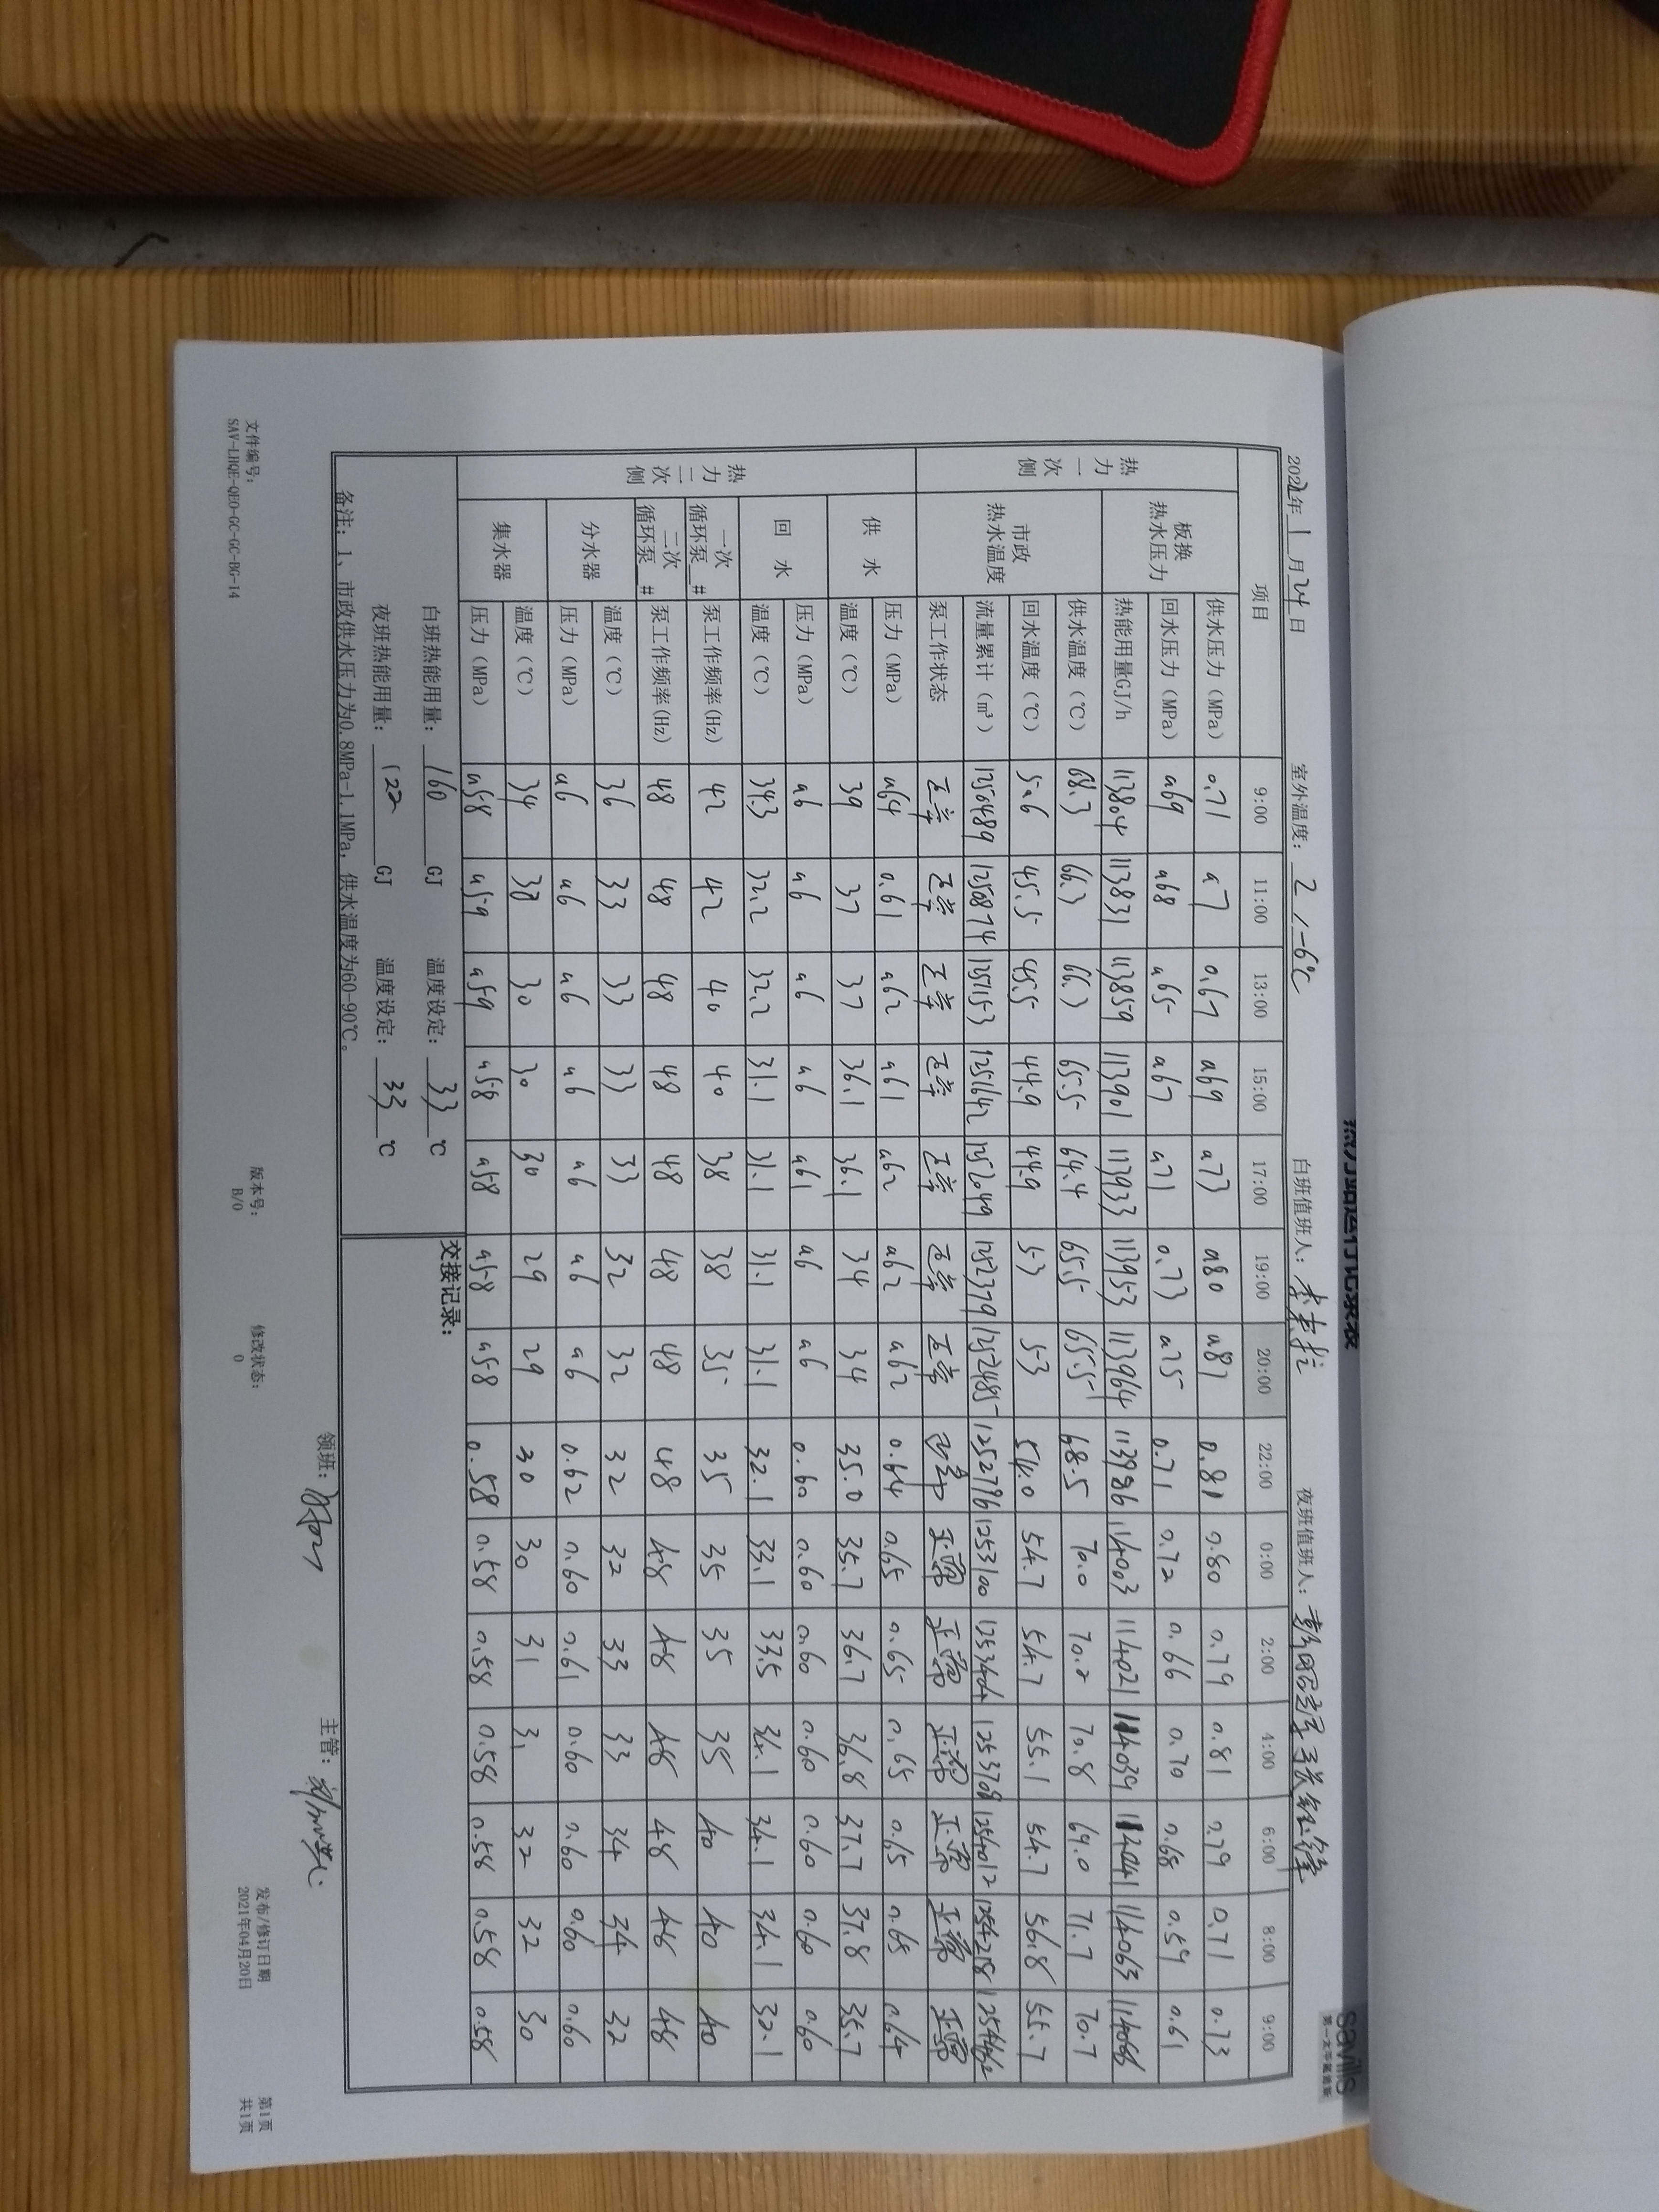 热力站运行记录表
savills
第一太平戴维斯
2022年 1 月 24 日 室外温度: 2 / -6℃ 白班值班人: 夜班值班人:
项目 9:00 11:00 13:00 15:00 17:00 19:00 20:00 22:00 0:00 2:00 4:00 6:00 8:00 9:00
热力一次侧
板换热水压力
供水压力（MPa） 0.71 0.7 0.67 0.69 0.73 0.80 0.81 0.81 0.80 0.79 0.81 0.79 0.71 0.73
回水压力（MPa） 0.69 0.68 0.65 0.67 0.71 0.73 0.75 0.71 0.72 0.66 0.70 0.68 0.59 0.61
热能用量GJ/h 113804 113831 113859 113901 113933 113953 113964 113986 114003 114021 114039 114041 114063 114066
市政热水温度
供水温度（℃） 68.3 66.3 66.3 65.5 64.4 65.5 65.5 68.5 70.0 70.2 70.8 69.0 71.7 70.7
回水温度（℃） 50.6 45.5 45.5 44.9 44.9 53 53 54.0 54.7 54.7 55.1 54.7 56.8 55.7
流量累计（m³） 1250489 1250874 1251153 1251642 1252049 1252379 1252485 1252796 1253100 1253404 1253708 1254012 1254218 1254462
泵工作状态 正常 正常 正常 正常 正常 正常 正常 正常 正常 正常 正常 正常 正常 正常
热力二次侧
供 水
压力（MPa） 0.64 0.61 0.62 0.61 0.62 0.62 0.62 0.64 0.65 0.65 0.65 0.65 0.65 0.64
温度（℃） 39 37 37 36.1 36.1 34 34 35.0 35.7 36.7 36.8 37.7 37.8 35.7
回 水
压力（MPa） 0.6 0.6 0.6 0.6 0.61 0.6 0.6 0.60 0.60 0.60 0.60 0.60 0.60 0.60
温度（℃） 34.3 32.2 32.2 31.1 31.1 31.1 31.1 32.1 33.1 33.5 34.1 34.1 34.1 32.1
一次循环泵__# 泵工作频率(Hz) 42 42 40 40 38 38 35 35 35 35 35 40 40 40
二次循环泵__# 泵工作频率(Hz) 48 48 48 48 48 48 48 48 48 48 48 48 48 48
分水器
温度（℃） 36 33 33 33 33 32 32 32 32 33 33 34 34 32
压力（MPa） 0.6 0.6 0.6 0.6 0.6 0.6 0.6 0.62 0.60 0.61 0.60 0.60 0.60 0.60
集水器
温度（℃） 34 30 30 30 30 29 29 30 30 31 31 32 32 30
压力（MPa） 0.58 0.59 0.59 0.58 0.58 0.58 0.58 0.58 0.58 0.58 0.58 0.58 0.58 0.58
白班热能用量: 160 GJ 温度设定: 33 ℃
交接记录:
夜班热能用量: 122 GJ 温度设定: 33 ℃
备注: 1、市政供水压力为0.8MPa-1.1MPa, 供水温度为60-90℃。
领班: 主管:
文件编号: 版本号: 修改状态: 发布/修订日期 第1页
SAV-LHQE-QEO-GC-GC-BG-14 B/0 0 2021年04月20日 共1页